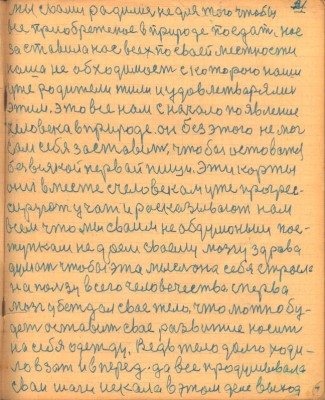 мы сваи радилис не для того чтобы
все приобретеное в природе поедат. нас
заставила нас всех по сваей местности
наша необходимост с которою наши
уже родители жили и удовлетварялис
этим. Это все нам с начало появление
человека в природе. он без этого не мог
сам себя заставит, чтобы остоватся
без всякой первай пищи. Эти карты
они вместе с человекам уже прогрес-
сируют учат и росказывают нам
всем что мы сваими не обдуманыи пос-
тупками не даем сваему мозгу здрава
думат чтобы эта мысл она себя строела
на ползу всего человечества. сперва
мозг убеждал свае тело, что можно бу-
дет оставит свае развитие носит
на себя одежду. Ведь тело долго ходи-
ло взат и вперед. да все продумывала
сваи шаги искала в этом деле выход